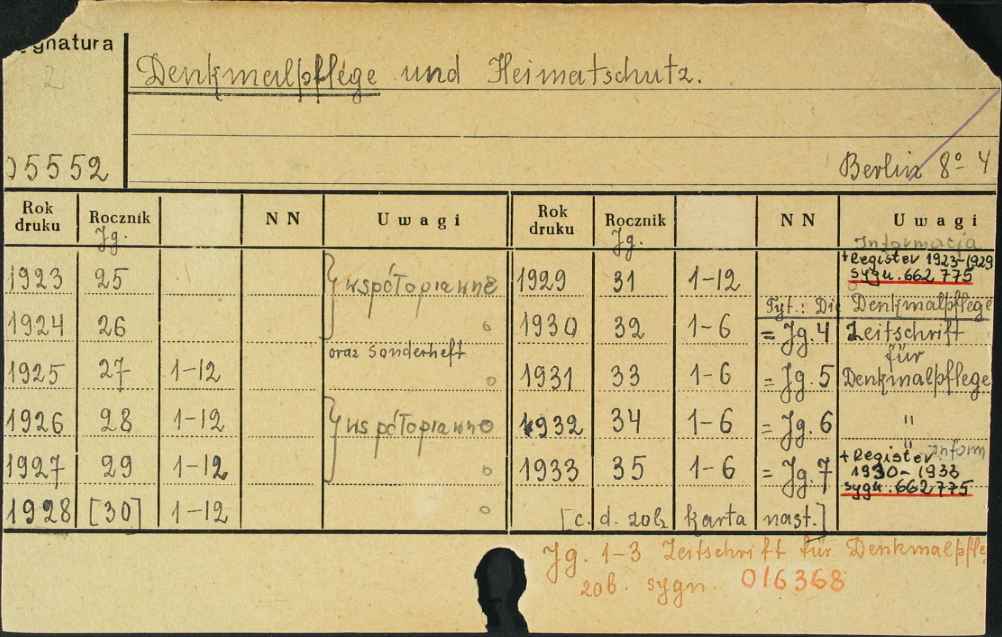 ygnatura
2
Denkmalpflege und Heimatschutz.
05552
Berlin 8º 4
Rok druku Rocznik NN Uwagi Rok druku Rocznik NN Uwagi
Jg. Jg. Informacja
1923 25 współoprawne 1929 31 1-12 + Register 1923-1929
sygn. 662 775
Tyt.: Die Denkmalpflege
1924 26 1930 32 1-6 = Jg. 4 Zeitschrift
oraz Sonderheft für
1925 27 1-12 1931 33 1-6 = Jg. 5 Denkmalpflege
1926 28 1-12 współoprawne 1932 34 1-6 = Jg. 6 "
" inform
1927 29 1-12 1933 35 1-6 = Jg. 7 + Register
1930-1933
sygn. 662 775
1928 [30] 1-12 [c. d. zob. karta nast.]
Jg. 1-3 Zeitschrift für Denkmalpfle
zob. sygn. 016368